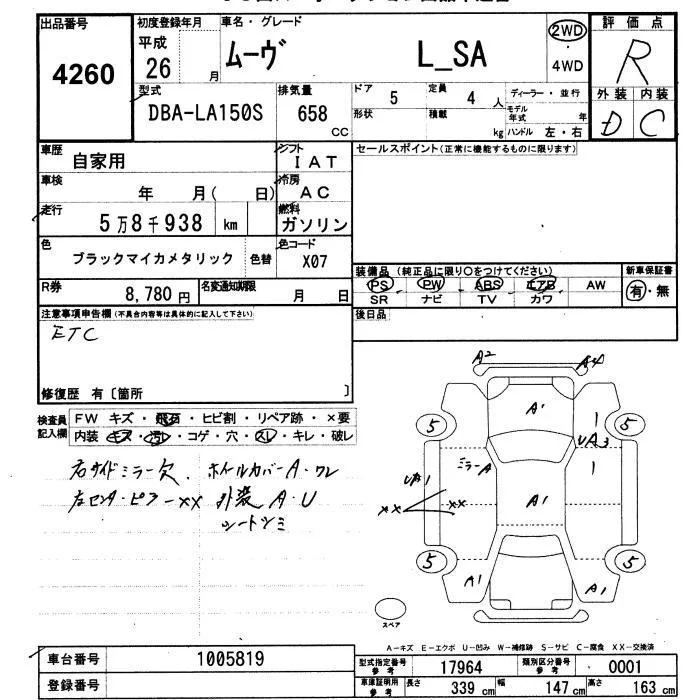 出品番号
4260
初度登録年月
平成
26 月
車名・グレード
ムーヴ L_SA
2WD
4WD
評価点
R
外装 内装
D C
型式
DBA-LA150S
排気量
658
CC
ドア 5
定員 4 人
形状
積載 kg
ディーラー・並行
モデル年式 年
ハンドル 左・右
車歴
自家用
シフト
IAT
車検
年 月( 日)
冷房
AC
走行
5万8千938 km
燃料
ガソリン
色
ブラックマイカメタリック 色替
色コード
X07
R券
8,780 円
名変通知期限
月 日
セールスポイント(正常に機能するものに限ります)
装備品(純正品に限り○をつけてください)
新車保証書
PS PW ABS エアB AW
SR ナビ TV カワ
有・無
後日品
注意事項申告欄(不具合内容等は具体的に記入して下さい)
ETC
修復歴 有〔箇所 〕
検査員
記入欄
FW キズ・飛石・ヒビ割・リペア跡・×要
内装 キズ・汚れ・コゲ・穴・スレ・キレ・破レ
右サイドミラー欠. ホイルカバーA・ワレ
左センターピラーXX 外装 A・U
シートシミ
A2
A4
A1
5
5
UA3
ミラーA
UA1
XX
XX
A1
5
5
A1
A1
スペア
A-キズ E-エクボ U-凹み W-補修跡 S-サビ C-腐食 XX-交換済
車台番号 1005819
登録番号
型式指定番号
参考
17964
類別区分番号
参考
0001
車庫証明用
参考
長さ 339 cm 幅 147 cm 高さ 163 cm